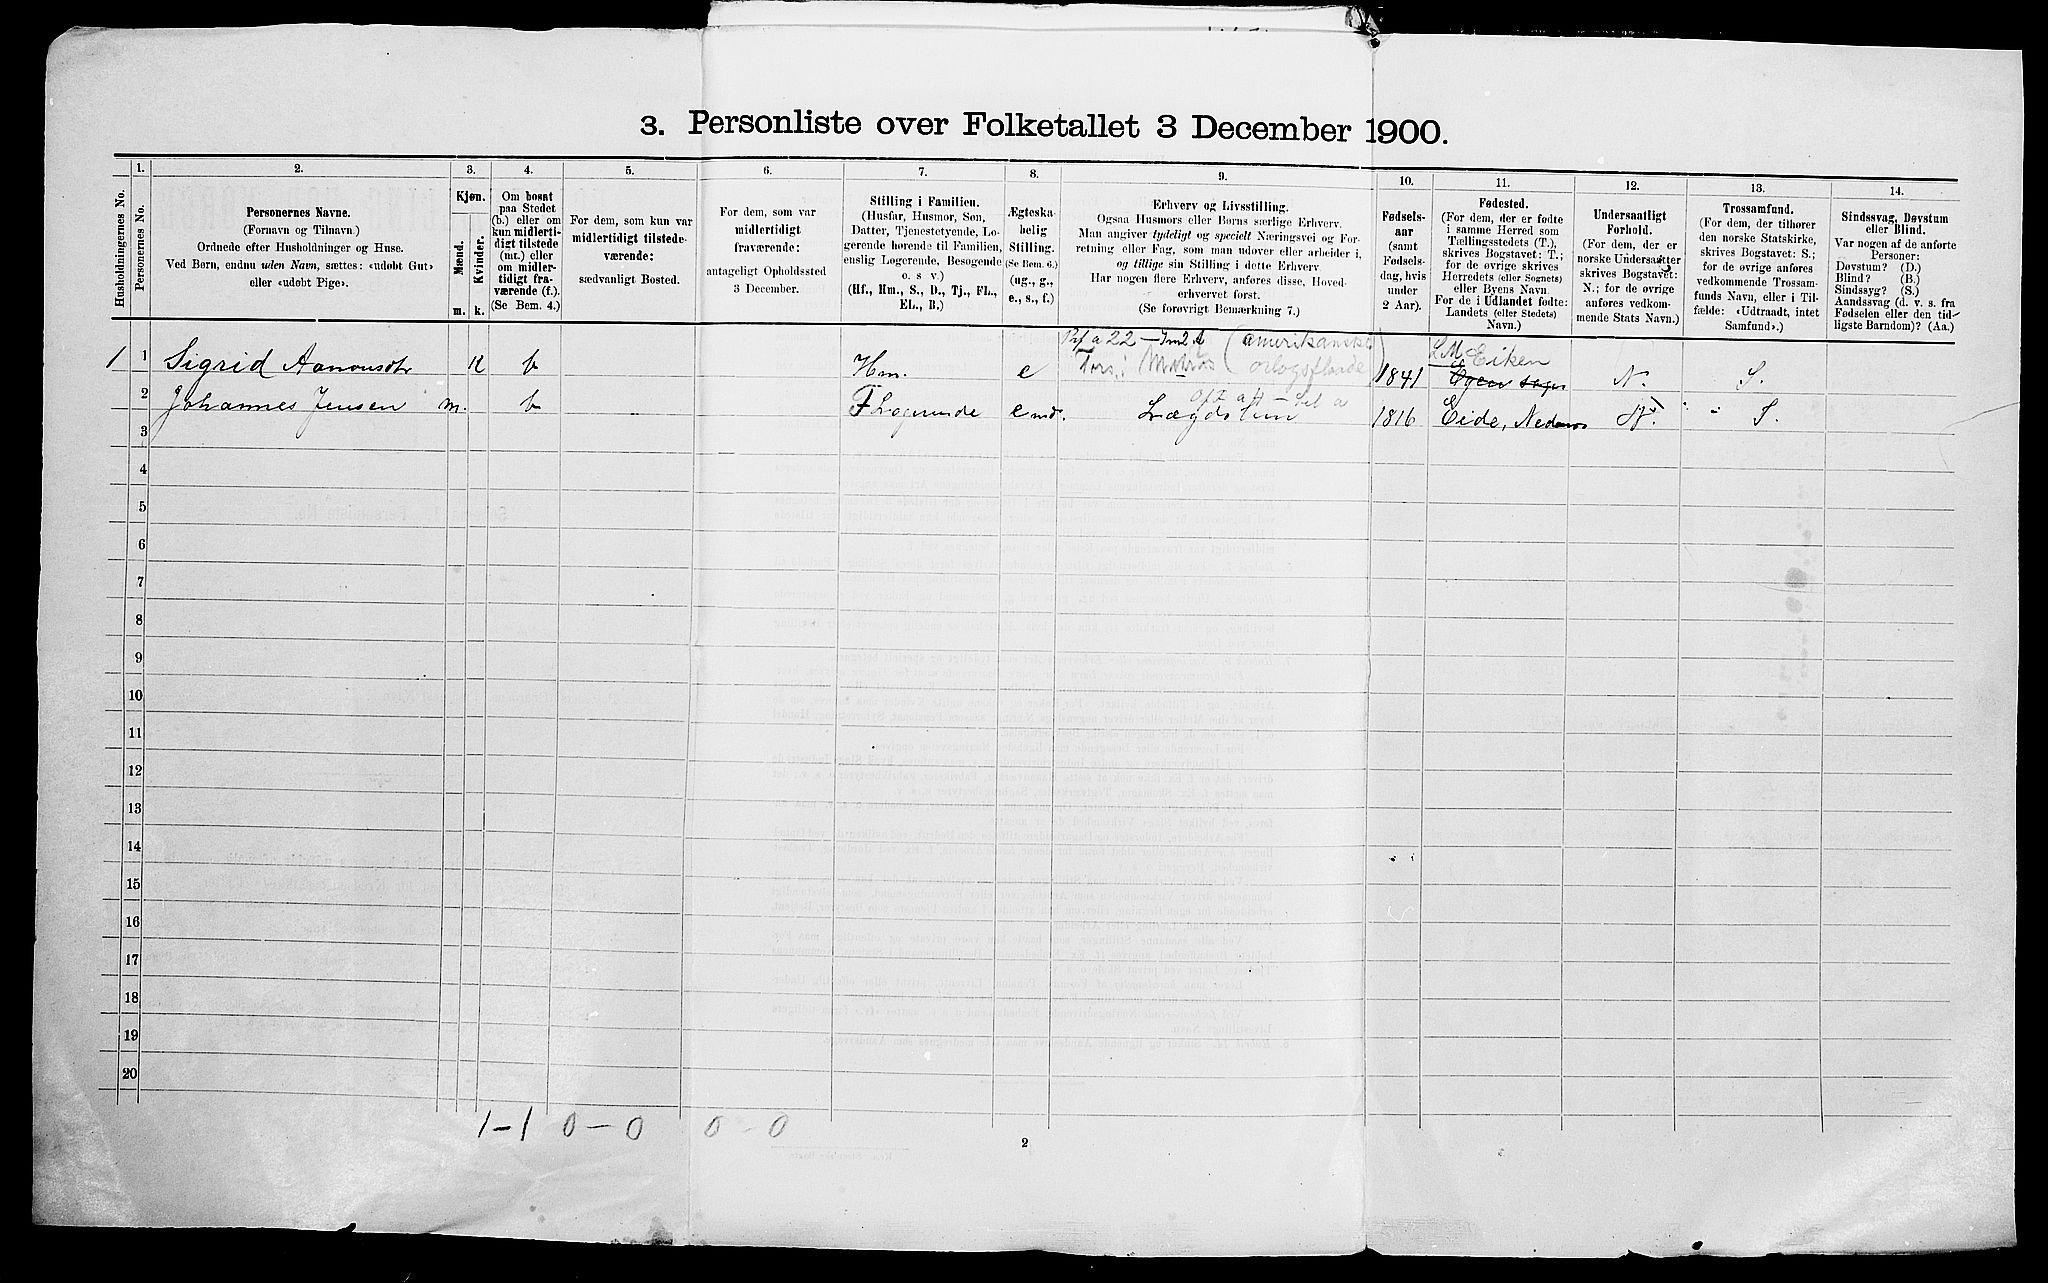 3. Personliste over Folketallet 3 December 1900.
1. 2. 3. 4. 5. 6. 7. 8. 9. 10. 11. 12. 13. 14.
Husholdningernes No.
Personernes No.
Personernes Navne.
(Fornavn og Tilnavn.)
Ordnede efter Husholdninger og Huse.
Ved Børn, endnu uden Navn, sættes: «udøbt Gut»
eller «udøbt Pige».
Kjøn.
Mænd.
Kvinder.
m. k.
Om bosat
paa Stedet
(b.) eller om
kun midlerti-
digt tilstede
(mt.) eller
om midler-
tidigt fra-
værende (f.).
(Se Bem. 4.)
For dem, som kun var
midlertidigt tilstede-
værende:
sædvanligt Bosted.
For dem, som var
midlertidigt
fraværende:
antageligt Opholdssted
3 December.
Stilling i Familien.
(Husfar, Husmor, Søn,
Datter, Tjenestetyende, Lo-
gerende hørende til Familien,
enslig Logerende, Besøgende
o. s. v.)
(Hf., Hm., S., D., Tj., FL.,
EL., B.)
Ægteska-
belig
Stilling.
(Se Bem. 6.)
(ug., g.,
e., s., f.)
Erhverv og Livsstilling.
Ogsaa Husmors eller Børns særlige Erhverv.
Man angiver tydeligt og specielt Næringsvei og For-
retning eller Fag, som man udøver eller arbeider i,
og tillige sin Stilling i dette Erhverv.
Har nogen flere Erhverv, anføres disse, Hoved-
erhvervet først.
(Se forøvrigt Bemærkning 7.)
Fødsels-
aar
(samt
Fødsels-
dag, hvis
under
2 Aar).
Fødested.
(For dem, der er fødte
i samme Herred som
Tællingsstedets (T.),
skrives Bogstavet: T.;
for de øvrige skrives
Herredets (eller Sognets)
eller Byens Navn.
For de i Udlandet fødte:
Landets (eller Stedets)
Navn.)
Undersaatligt
Forhold.
(For dem, der er
norske Undersaatter
skrives Bogstavet:
N.; for de øvrige
anføres vedkom-
mende Stats Navn.)
Trossamfund.
(For dem, der tilhører
den norske Statskirke,
skrives Bogstavet: S.;
for de øvrige anføres
vedkommende Trossam-
funds Navn, eller i Til-
fælde: «Udtraadt, intet
Samfund».)
Sindssvag, Døvstum
eller Blind.
Var nogen af de anførte
Personer:
Døvstum? (D.)
Blind? (B.)
Sindssyg? (S.)
Aandssvag (d. v. s. fra
Fødselen eller den tid-
ligste Barndom)? (Aa.)
(amerikanske
L.M Eiken
1 1 Sigrid Aanonsdtr K b Hm. e Fors.: Matros orlogsflaade) 1841 N. S.
2 Johannes Jensen m. b F Logerende e 1816 Eide, Nedenes N. S.
3
4
5
6
7
8
9
10
11
12
13
14
15
16
17
18
19
20
1-1 0-0 0-0
2